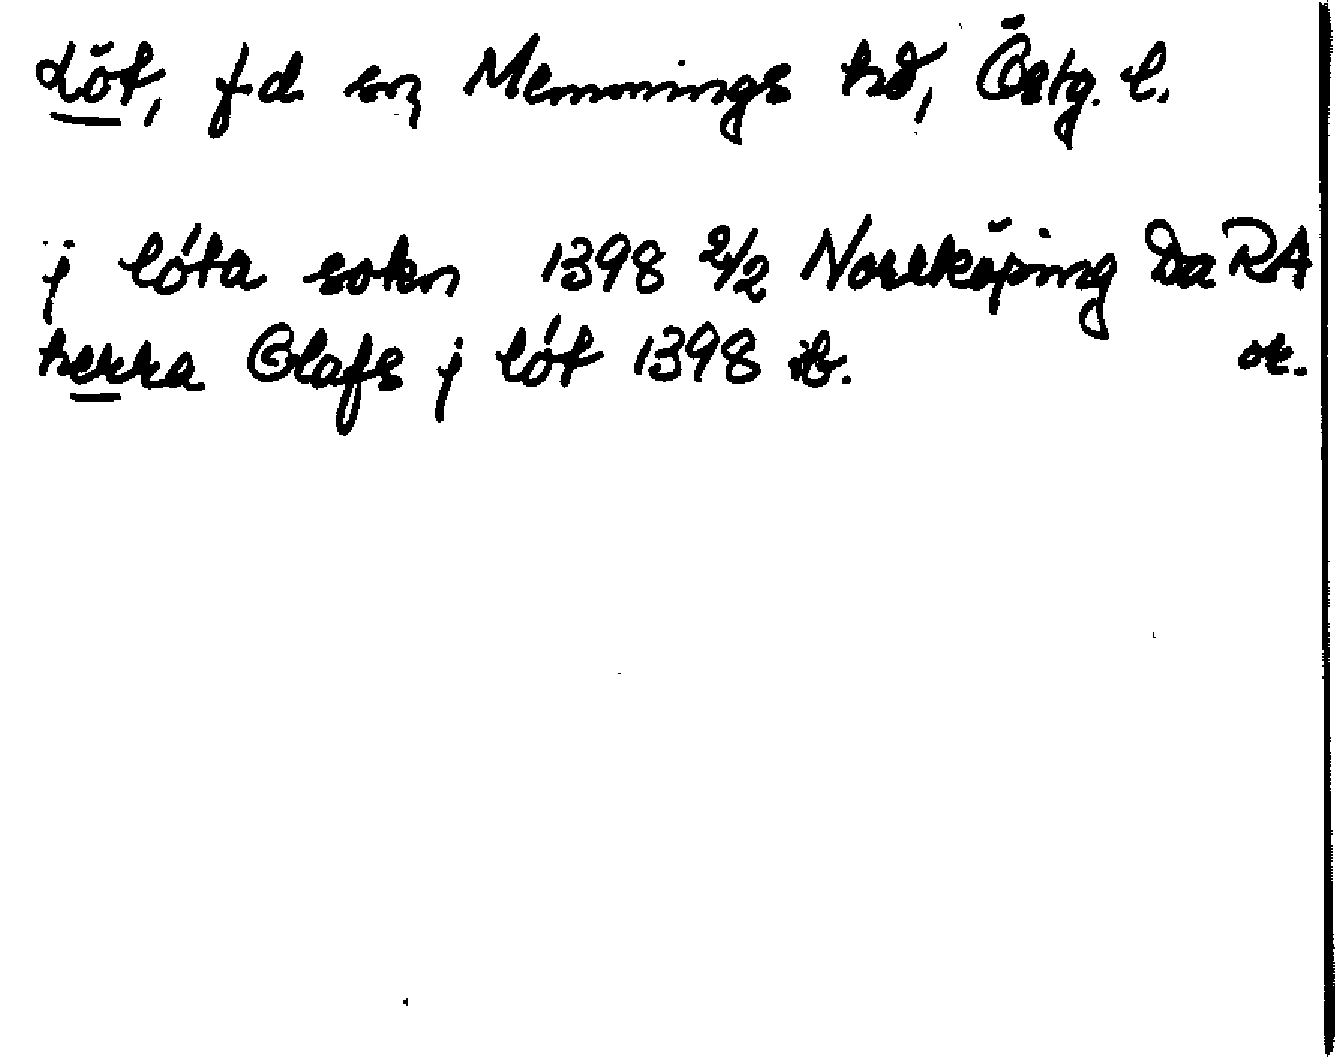 Löt, f.d. sn, Memmings hd, Östg. l.
j lóta sokn 1398 2/2 Norrköping Da RA
herra Olafs j lót 1398 ib. or.